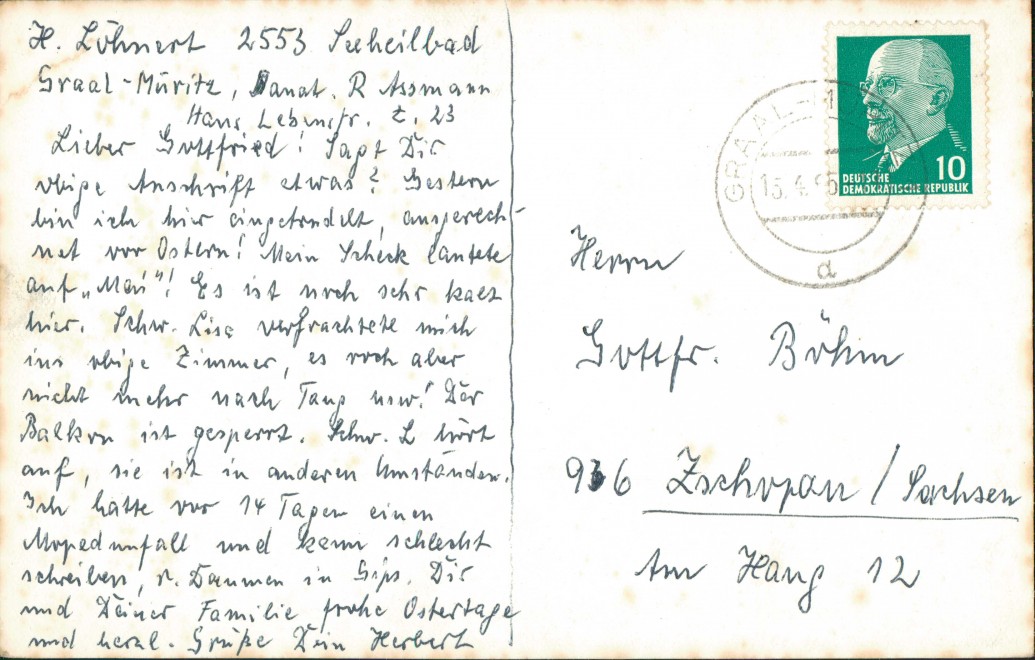 H. Löhnert 2553 Seeheilbad
Graal-Müritz, Sanat. R Assmann
Haus Lebensfr. Z. 23
Lieber Gottfried! Sagt Dir
obige Anschrift etwas? Gestern
bin ich hier eingetrudelt, ausgerech-
net vor Ostern! Mein Scheck lautete
auf „Mai"! Es ist noch sehr kalt
hier. Schw. Lisa verfrachtete mich
ins obige Zimmer, es roch aber
nicht mehr nach Tang usw! Der
Balkon ist gesperrt. Schw. L hört
auf, sie ist in anderen Umständen.
Ich hatte vor 14 Tagen einen
Mopedunfall und kann schlecht
schreiben, r. Daumen in Gips. Dir
und Deiner Familie frohe Ostertage
und herzl. Grüße Dein Herbert
DEUTSCHE 10
DEMOKRATISCHE REPUBLIK
GRAAL-M
15.4.
a
Herrn
Gottfr. Böhm
936 Zschopau / Sachsen
Am Hang 12